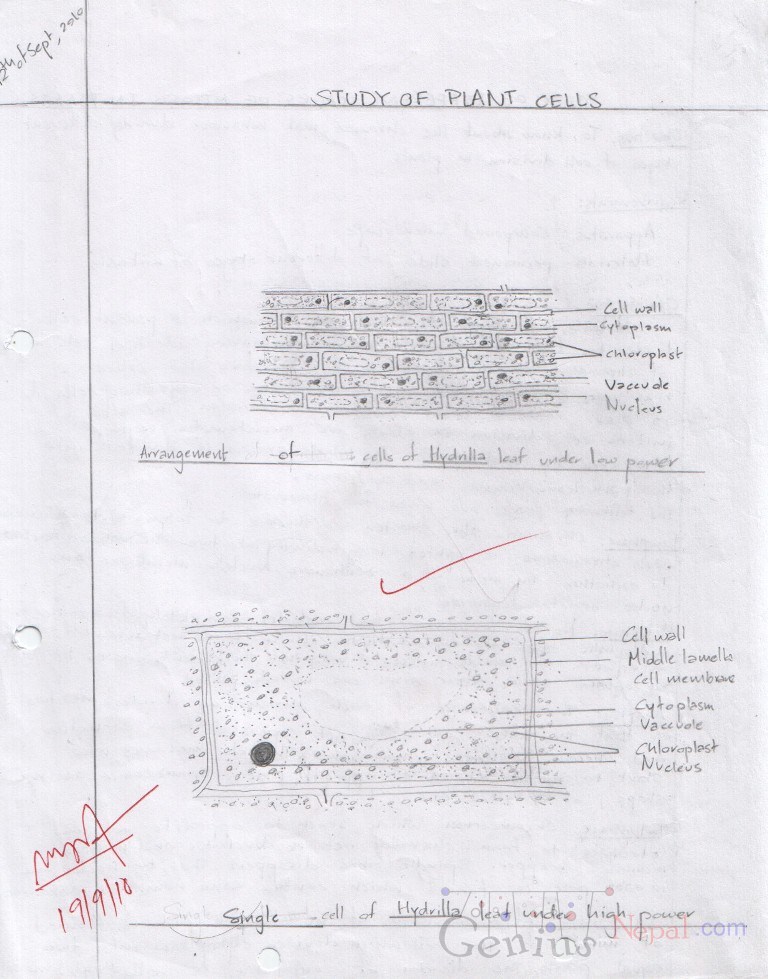 12th of Sept, 2010
STUDY OF PLANT CELLS
Cell wall
Cytoplasm
Chloroplast
Vaccuole
Nucleus
Arrangement of cells of Hydrilla leaf under low power
Cell wall
Middle lamella
Cell membrane
Cytoplasm
Vaccuole
Chloroplast
Nucleus
19/9/10
Single cell of Hydrilla leaf under high power
Genius Nepal.com